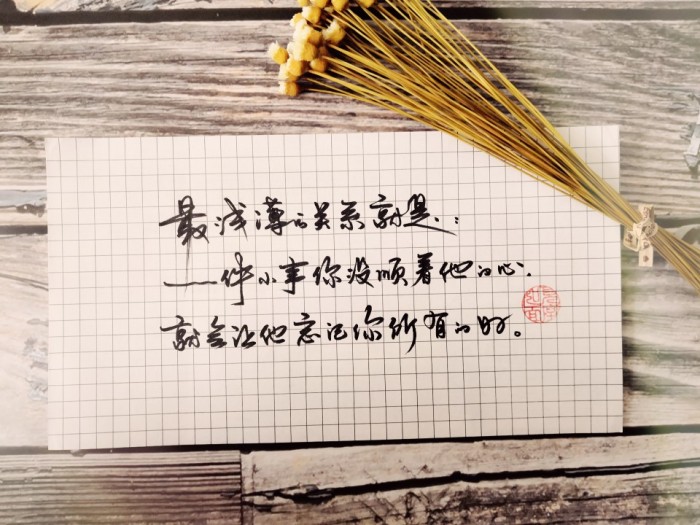 最浅薄的关系就是:
一件小事你没顺着他的心,
就会让他忘记你所有的好。